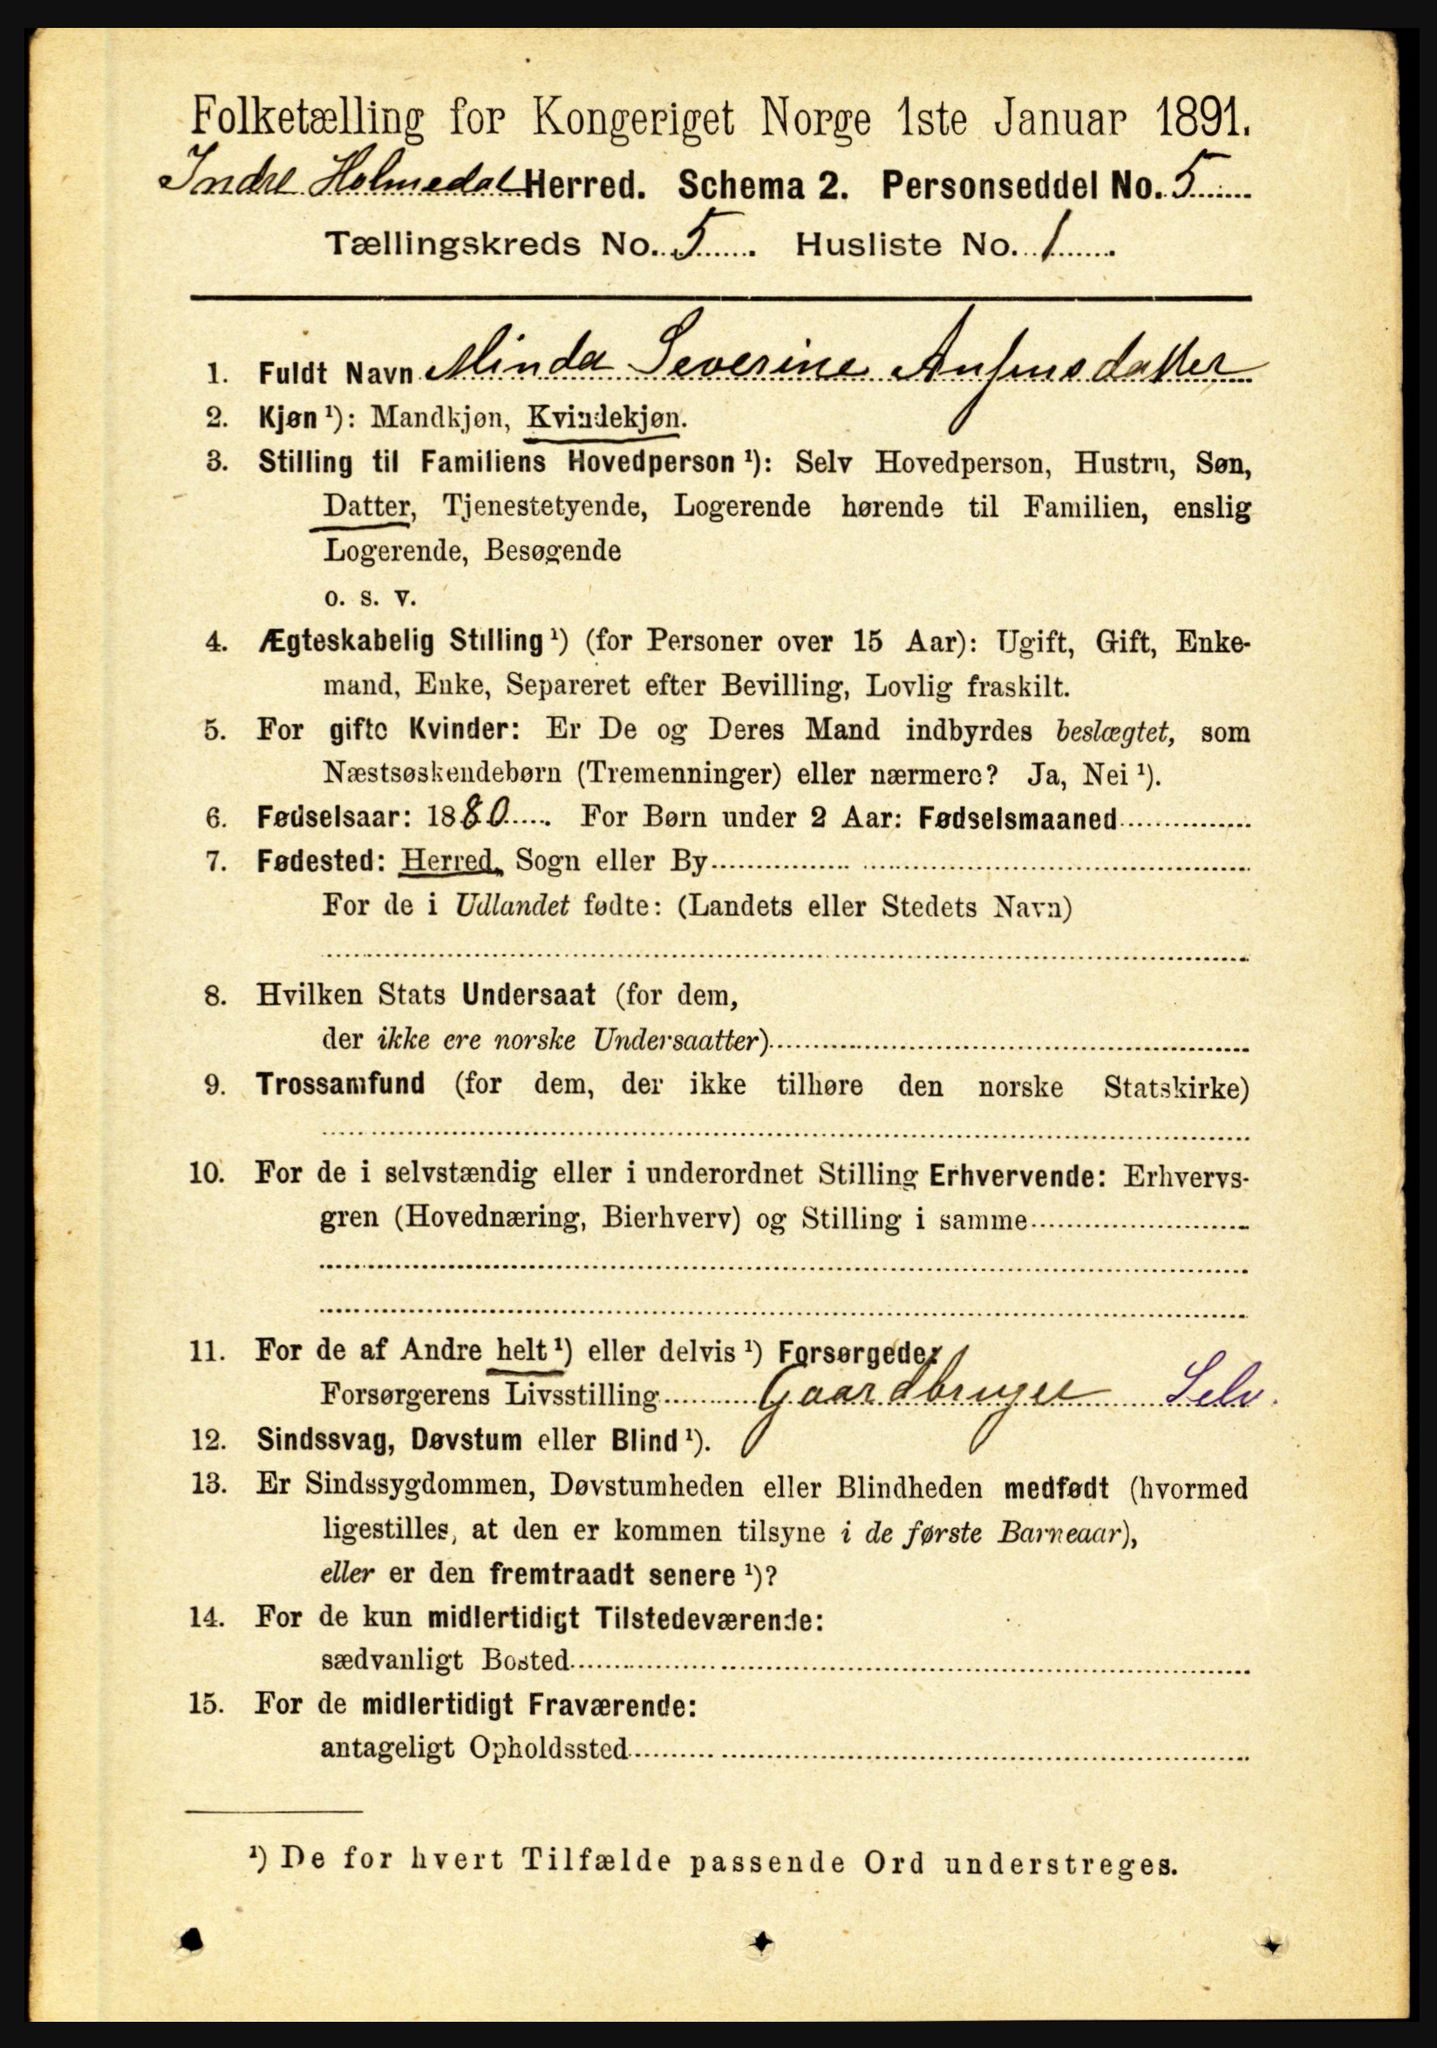 Folketælling for Kongeriget Norge 1ste Januar 1891.
Indre Holmedal Herred. Schema 2. Personseddel No. 5
Tællingskreds No. 5. Husliste No. 1.
1. Fuldt Navn Minda Severine Anfinsdatter
2. Kjøn ¹): Mandkjøn, Kvindekjøn.
3. Stilling til Familiens Hovedperson ¹): Selv Hovedperson, Hustru, Søn,
Datter, Tjenestetyende, Logerende hørende til Familien, enslig
Logerende, Besøgende
o. s. v.
4. Ægteskabelig Stilling ¹) (for Personer over 15 Aar): Ugift, Gift, Enke-
mand, Enke, Separeret efter Bevilling, Lovlig fraskilt.
5. For gifte Kvinder: Er De og Deres Mand indbyrdes beslægtet, som
Næstsøskendebørn (Tremenninger) eller nærmere? Ja, Nei ¹).
6. Fødselsaar: 1880. For Børn under 2 Aar: Fødselsmaaned
7. Fødested: Herred, Sogn eller By
For de i Udlandet fødte: (Landets eller Stedets Navn)
8. Hvilken Stats Undersaat (for dem,
der ikke ere norske Undersaatter)
9. Trossamfund (for dem, der ikke tilhøre den norske Statskirke)
10. For de i selvstændig eller i underordnet Stilling Erhvervende: Erhvervs-
gren (Hovednæring, Bierhverv) og Stilling i samme
11. For de af Andre helt ¹) eller delvis ¹) Forsørgede:
Forsørgerens Livsstilling Gaardbruger Selv.
12. Sindssvag, Døvstum eller Blind ¹).
13. Er Sindssygdommen, Døvstumheden eller Blindheden medfødt (hvormed
ligestilles, at den er kommen tilsyne i de første Barneaar),
eller er den fremtraadt senere ¹)?
14. For de kun midlertidigt Tilstedeværende:
sædvanligt Bosted
15. For de midlertidigt Fraværende:
antageligt Opholdssted
¹) De for hvert Tilfælde passende Ord understreges.